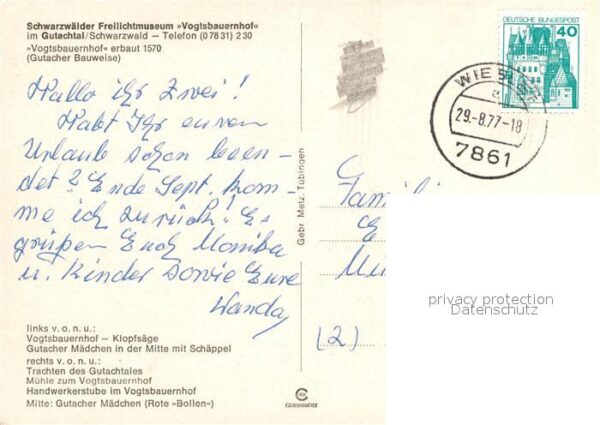 Schwarzwälder Freilichtmuseum »Vogtsbauernhof«
im Gutachtal/Schwarzwald — Telefon (0 78 31) 2 30
»Vogtsbauernhof« erbaut 1570
(Gutacher Bauweise)
Hallo ihr Zwei!
Habt Ihr euren
Urlaub schon been-
det? Ende Sept. kom-
me ich zurück! Es
grüßen Euch Monika
u. Kinder sowie Eure
Wanda
links v. o. n. u.:
Vogtsbauernhof — Klopfsäge
Gutacher Mädchen in der Mitte mit Schäppel
rechts v. o. n. u.:
Trachten des Gutachtales
Mühle zum Vogtsbauernhof
Handwerkerstube im Vogtsbauernhof
Mitte: Gutacher Mädchen (Rote »Bollen«)
Gebr. Metz, Tübingen
DEUTSCHE BUNDESPOST
40
WIES
a
29.-8.77-18
7861
Famili
(2)
privacy protection
Datenschutz